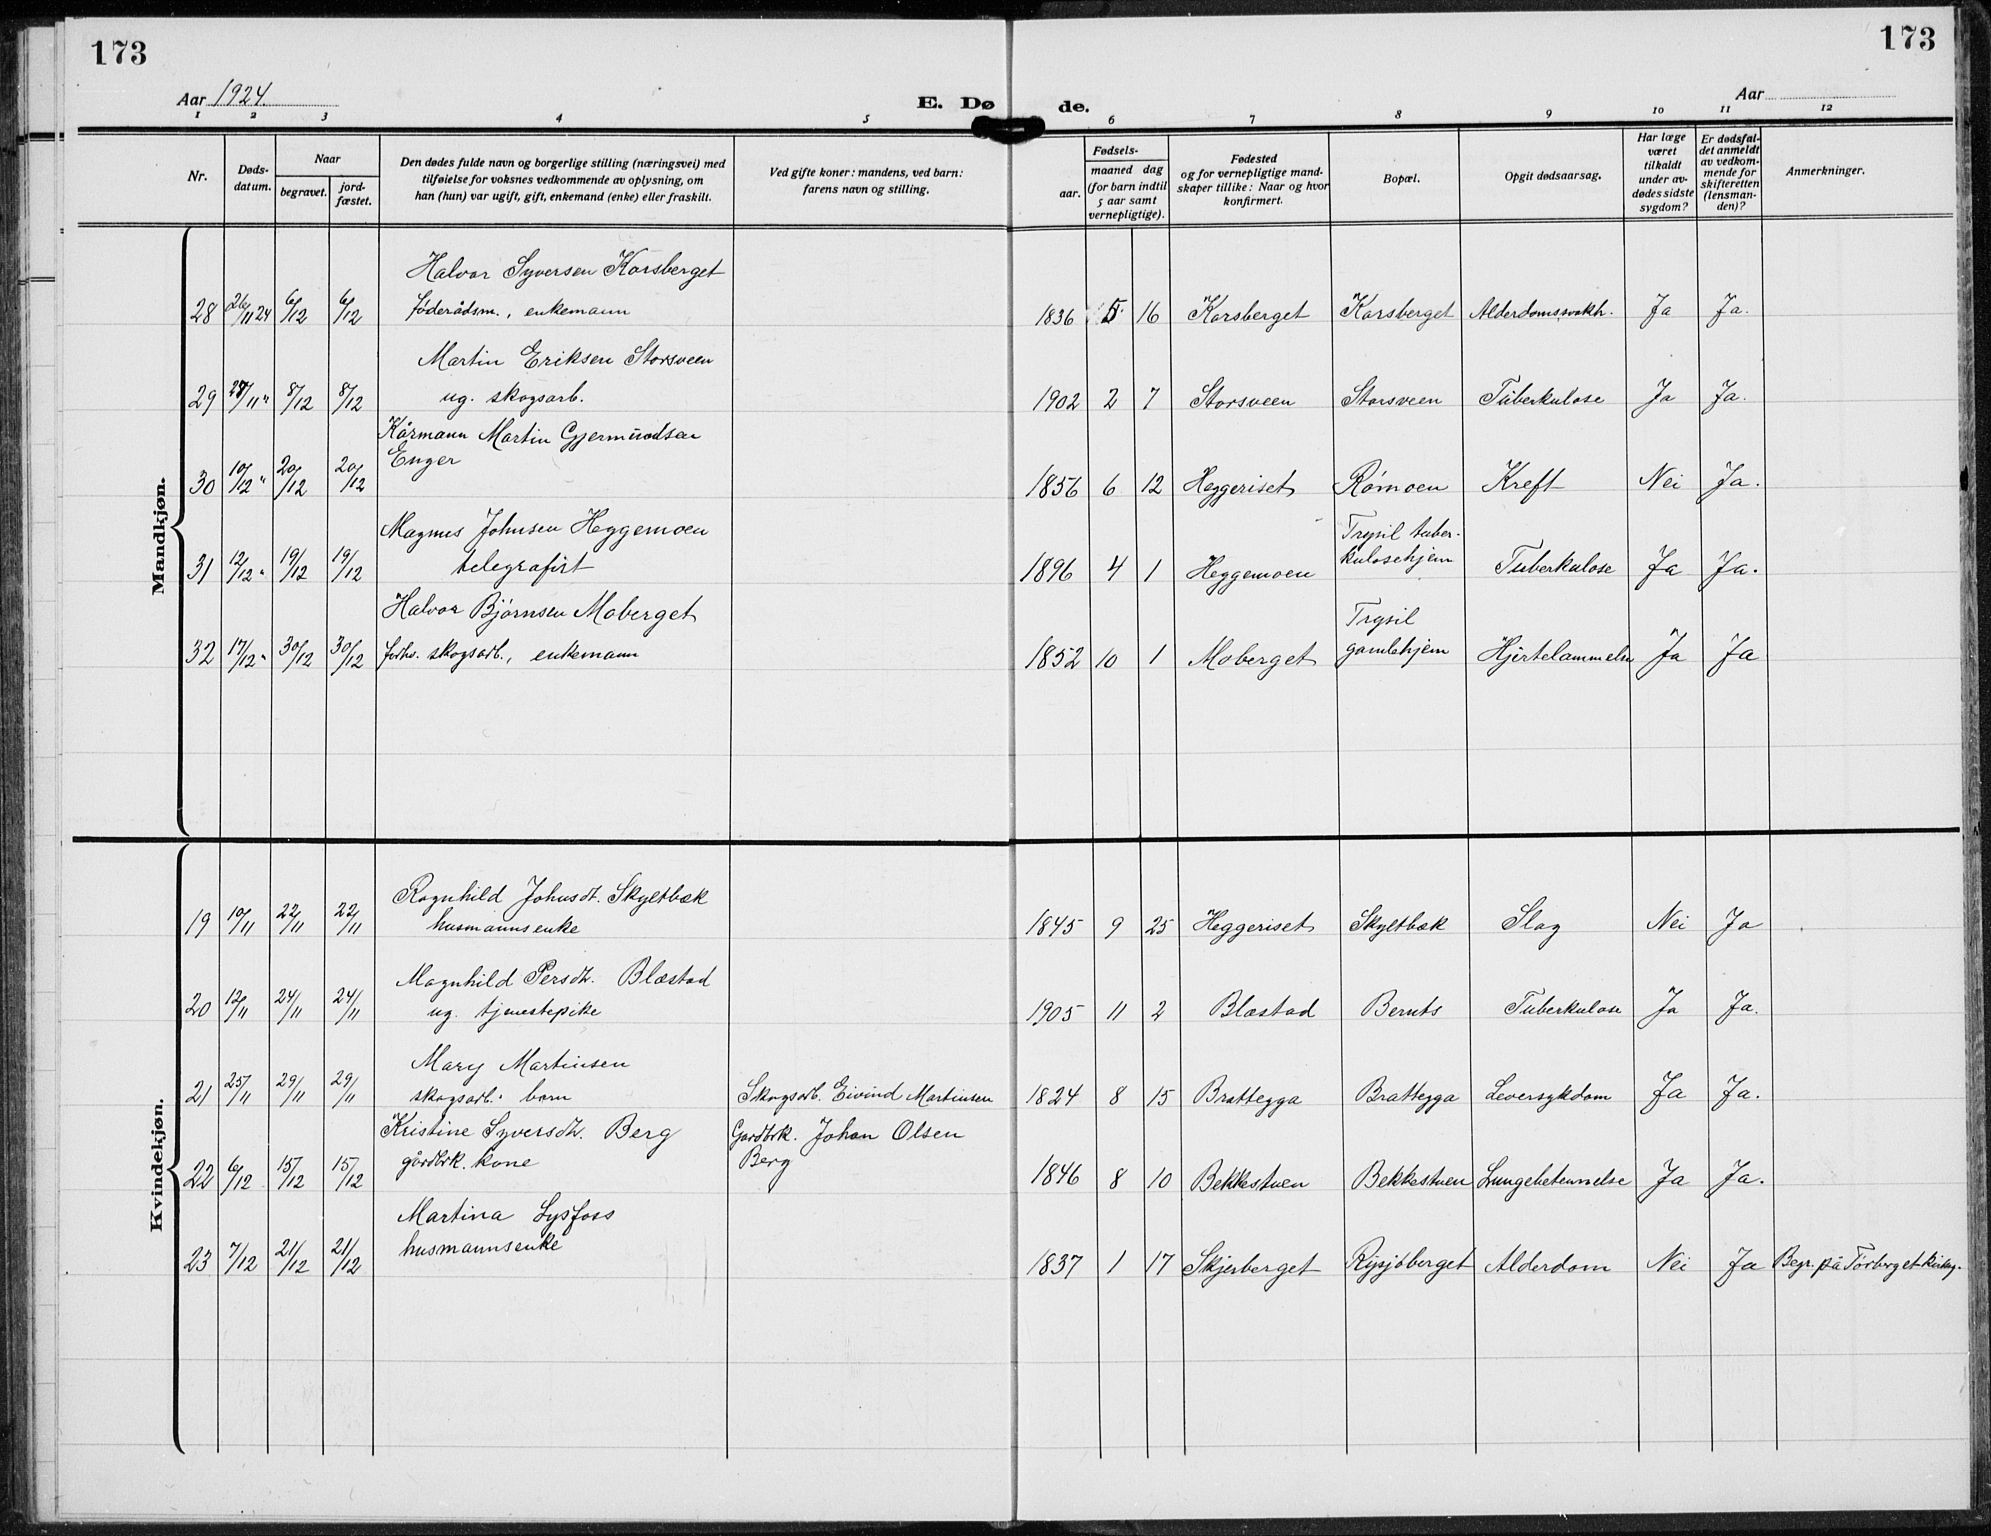 173
173
Aar 1924.
E. Dø de.
Aar
1 2 3 4 5 6 7 8 9 10 11 12
Nr.
Døds-
datum.
Naar
begravet.
jord-
fæstet.
Den dødes fulde navn og borgerlige stilling (næringsvei) med
tilføielse for voksnes vedkommende av oplysning, om
han (hun) var ugift, gift, enkemand (enke) eller fraskilt.
Ved gifte koner: mandens, ved barn:
farens navn og stilling.
Fødsels-
aar.
maaned dag
(for barn indtil
5 aar samt
vernepligtige).
Fødested
og for vernepligtige mand-
skaper tillike: Naar og hvor
konfirmert.
Bopæl.
Opgit dødsaarsag.
Har læge
været
tilkaldt
under av-
dødes sidste
sygdom?
Er dødsfal-
det anmeldt
av vedkom-
mende for
skifteretten
(lensman-
den)?
Anmerkninger.
Mandkjøn.
Halvor Syversen Korsberget
28 26/11 24 6/12 6/12 føderådsm., enkemann 1836 5 16 Korsberget Korsberget Alderdomssvakh. Ja Ja.
Martin Eriksen Storsveen
29 28/11 " 8/12 8/12 ug. skogsarb. 1902 2 7 Storsveen Storsveen Tuberkulose Ja Ja.
Kårmann Martin Gjermundsen
Enger
30 10/12 " 20/12 20/12 1856 6 12 Heggeriset Rømoen Kreft Nei Ja.
Magnus Johnsen Heggemoen Trysil tuber-
31 12/12 " 19/12 19/12 telegrafist 1896 4 1 Heggemoen kulosehjem Tuberkulose Ja Ja.
Halvor Bjørnsen Moberget Trysil
32 17/12 " 30/12 30/12 forhv. skogsarb., enkemann 1852 10 1 Moberget gamlehjem Hjertelammelse Ja Ja
Kvindekjøn.
Ragnhild Johnsdt. Skyltbæk
19 10/11 22/11 22/11 husmannsenke 1845 9 25 Heggeriset Skyltbæk Slag Nei Ja
Magnhild Persdt. Blæstad
20 12/11 24/11 24/11 ug. tjenestepike 1905 11 2 Blæstad Bernts Tuberkulose Ja Ja.
Mary Martinsen
21 25/11 29/11 29/11 skogsarb. barn Skogsarb. Eivind Martinsen 1824 8 15 Brattegga Brattegga Leversykdom Ja Ja.
Kristine Syversdt. Berg Gardbrk. Johan Olsen
22 6/12 15/12 15/12 gårdbrk. kone Berg 1846 8 10 Bekkestuen Bekkestuen Lungebetennelse Ja Ja.
Martina Lysfoss
23 7/12 21/12 21/12 husmannsenke 1837 1 17 Skjerberget Rysjøberget Alderdom Nei Ja Begr. på Tørberget kirkeg.